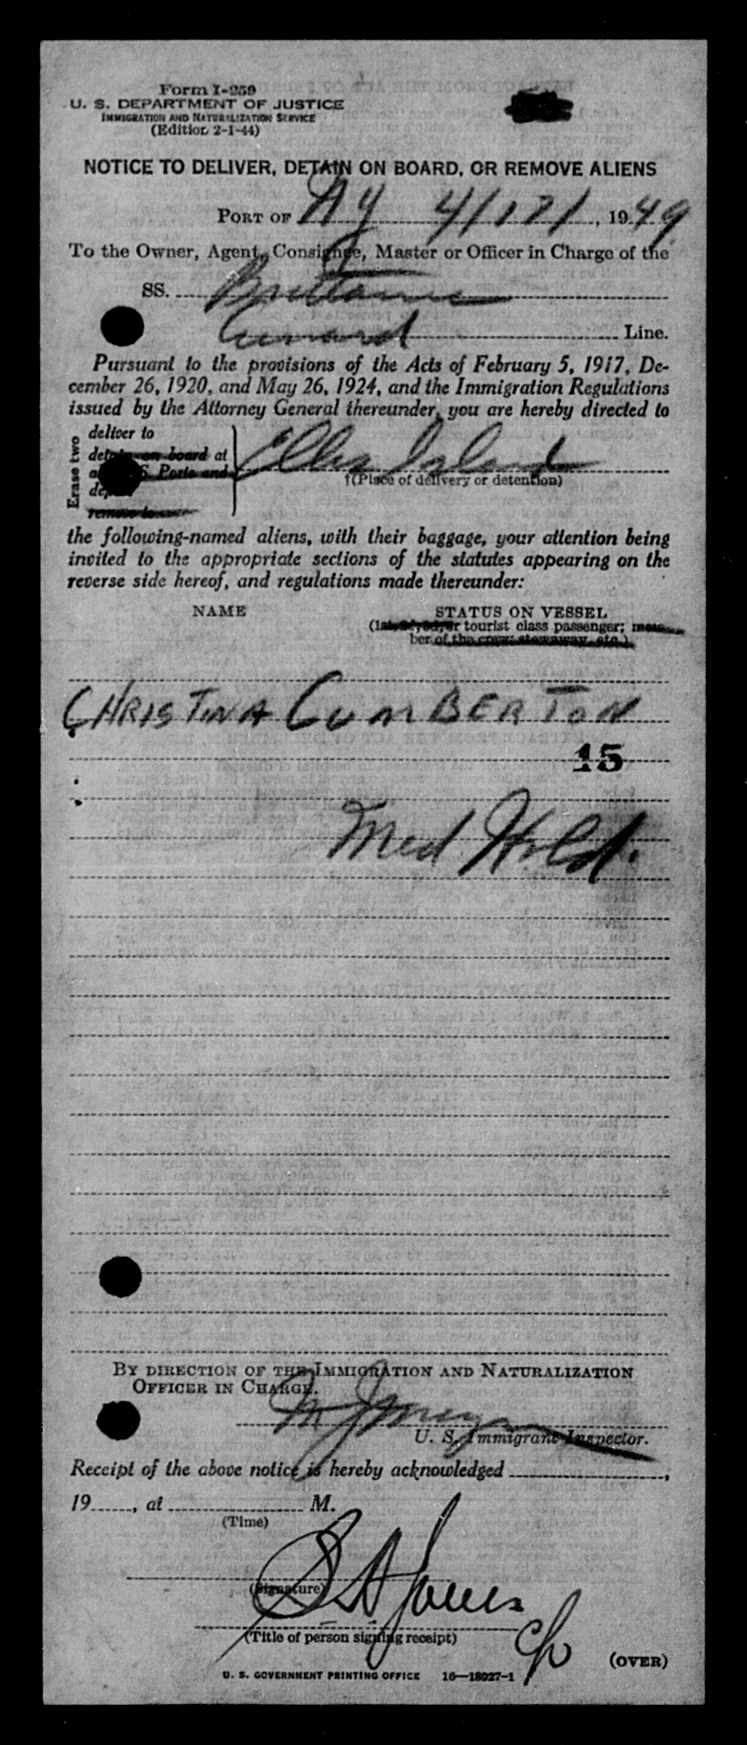 Form I-259
U. S. DEPARTMENT OF JUSTICE
IMMIGRATION AND NATURALIZATION SERVICE
(Edition 2-1-44)
NOTICE TO DELIVER, DETAIN ON BOARD, OR REMOVE ALIENS
PORT OF NY 4/17/, 1949
To the Owner, Agent, Consignee, Master or Officer in Charge of the
SS. Brittanic
Cunard Line.
Pursuant to the provisions of the Acts of February 5, 1917, De-
cember 26, 1920, and May 26, 1924, and the Immigration Regulations
issued by the Attorney General thereunder, you are hereby directed to
Erase two
deliver to
detain on board at
S. Ports and
remove to
Ellis Island
†(Place of delivery or detention)
the following-named aliens, with their baggage, your attention being
invited to the appropriate sections of the statutes appearing on the
reverse side hereof, and regulations made thereunder:
NAME STATUS ON VESSEL
(1st, 2d, or tourist class passenger; mem-
ber of the crew; stowaway, etc.)
CHRISTINA CUMBERTON
15
Med Hold.
BY DIRECTION OF THE IMMIGRATION AND NATURALIZATION
OFFICER IN CHARGE.
U. S. Immigrant Inspector.
Receipt of the above notice is hereby acknowledged ,
19 , at M.
(Time)
S A Jones
(Signature)
(Title of person signing receipt)
c/o
(OVER)
U. S. GOVERNMENT PRINTING OFFICE 16—18027-1